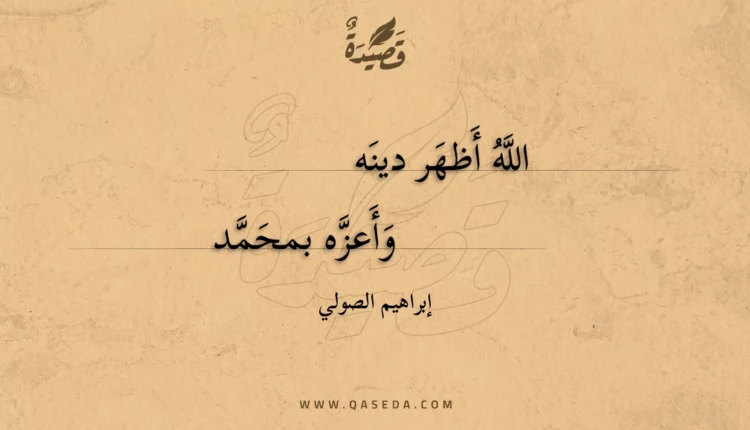 قَصِيْدَةٌ
اللَّهُ أَظهَر دينَه
وَأَعزَّه بمحَمَّد
إبراهيم الصولي
WWW.QASEDA.COM